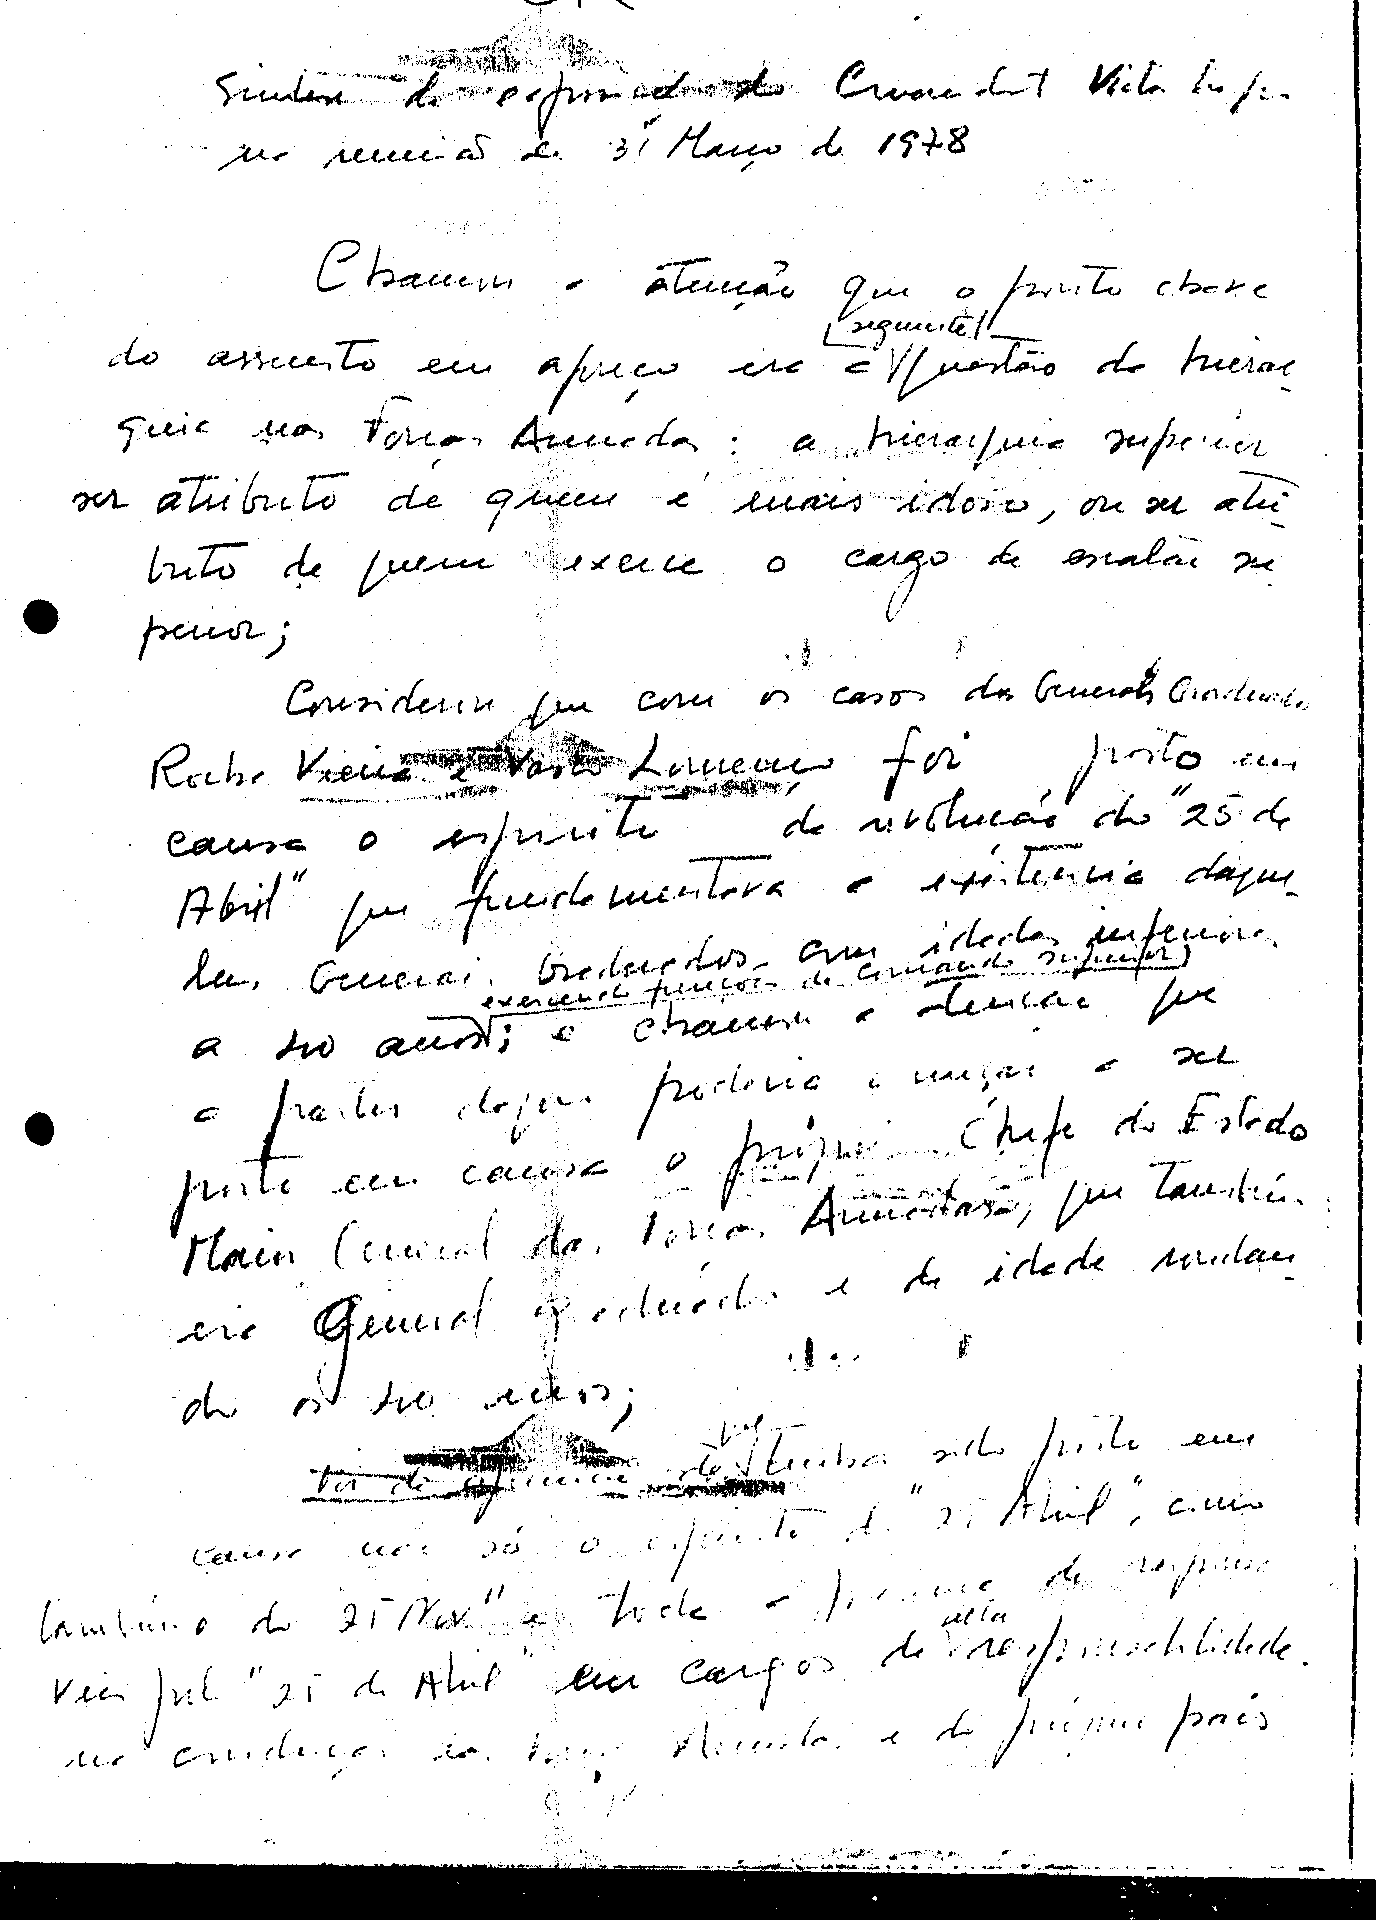 Síntese da exposição do Comandante Vitor Crespo
na reunião de 31 Março de 1978
Chamou a atenção que o ponto chave
do assunto em apreço era a [seguinte] questão da hierar-
quia nas Forças Armadas: a hierarquia superior
ser atributo de quem é mais idoso, ou ser atri-
buto de quem exerce o cargo de escalão su
perior;
Considerou que com os casos dos Generais Graduados
Rocha Vieira e Vasco Lourenço foi posto em
causa o espírito da revolução do "25 de
Abril" que fundamentava a existência daque-
les Generais Graduados com idades inferiores
a 40 anos [exercendo funções de comando superior]; e chamou a atenção que
a partir daqui poderia começar a ser
posto em causa o próprio Chefe do Estado
Maior General das Forças Armadas, que também
era General Graduado e de idade rondan-
do os 40 anos;
tinha sido posto em
causa não só o espírito do "25 Abril", como
também o do 25 Nov" e toda a
pelo "25 de Abril" em cargos de alta responsabilidade
na condução das Forças Armadas e do próprio país